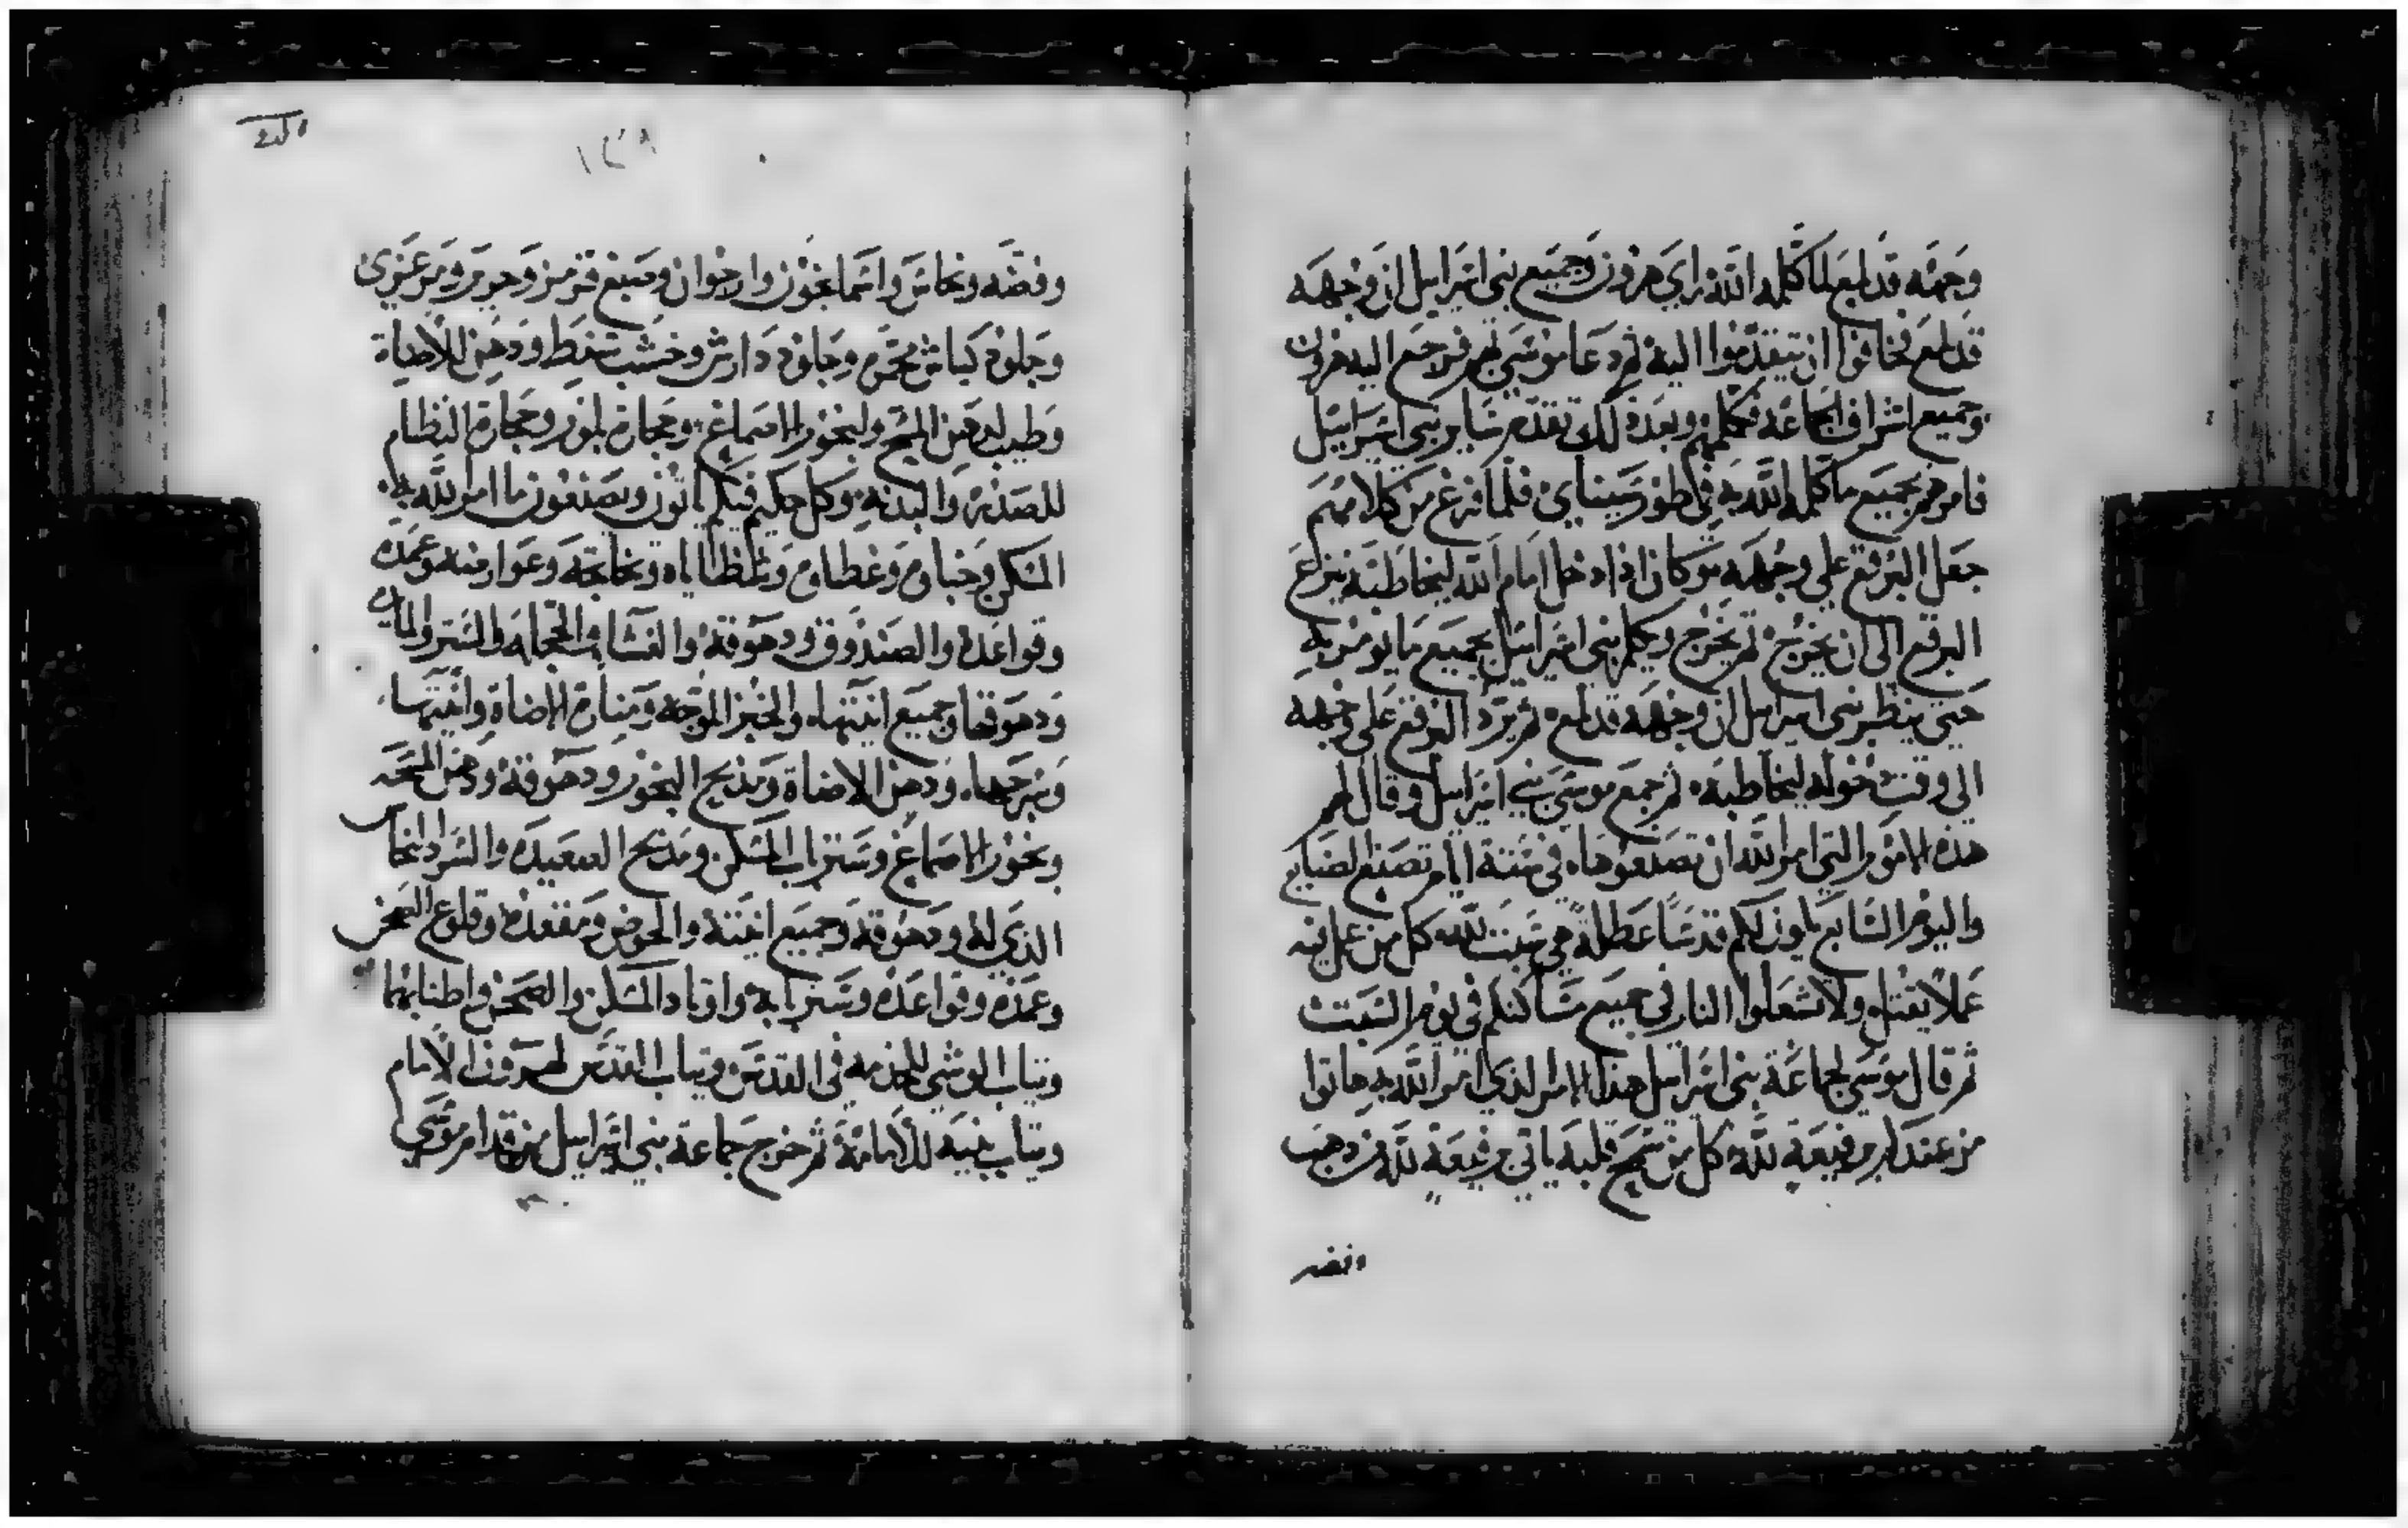 وجهه قد لمع لما كلمه الله راي هرون وجميع بني اسراييل ان وجهه
قد لمع فخافوا ان يتقدموا اليه ثم دعا موسي بهم فرجع اليه هرون
وجميع اشراف الجماعة فكلمهم وبعد ذلك تقدم ساير بني اسراييل
فامرهم بجميع ما كلمه الله به في طور سيناي فلما فرغ من كلامهم
جعل البرقع علي وجهه وكان اذا دخل امام الله ليخاطبه ينزع
البرقع الي ان يخرج ثم يخرج ويكلم بني اسراييل بجميع ما يومر به
حتي ينظر بني اسراييل ان وجهه قد لمع ثم يرد البرقع علي وجهه
الي وقت دخوله ليخاطبه ثم جمع موسي بني اسراييل وقال لهم
هذه الامور التي امر الله ان تصنعوها في ستة ايام تصنع الصنايع
واليوم السابع يكون لكم قدسا عطلة هي سبت لله كل من عمل فيه
عملا يقتل ولا تشعلوا النار في جميع مساكنكم في يوم السبت
ثم قال موسي لجماعة بني اسراييل هذا الامر الذي امر الله به هاتوا
من عندكم رفيعة لله كل من سمح قلبه ياتي برفيعة لله من دهب
وفضه
وفضه ونحاس واسمانجون وارجوان وصبغ قرمز وحرير ومرعزي
وجلود كباش محمره وجلود دارش وخشب سنط ودهن للاضاة
وطيب لدهن المسح ولبخور الاصماغ وحجارة بلور وحجارة النظام
للصدره والبدنه وكل حكيم فيكم ياتون ويصنعون ما امر الله به
المسكن وخباوه وغطاوه وشظاياه وتخاتجه وعوارضه وعمده
وقواعده والصندوق ودهوقه والغشا والحجله والستر والمايده
ودهوقها وجميع انيتها والخبز الموجه ومنارة الاضاة وانيتها
وسرجها ودهن الاضاة ومذبح البخور ودهوقه ودهن المسحه
وبخور الاصماغ وستر باب المسكن ومذبح الصعيده والسرد النحاس
الذي له ودهوقه وجميع انيته والحوض ومقعده وقلوع الصحن
وعمده وقواعده وستر بابه واوتاد المسكن والصحن واطنابهما
وثياب الوشي للخدمه في القدس وثياب القدس لهرون الامام
وثياب بنيه للامامة ثم خرج جماعة بني اسراييل من قدام موسي